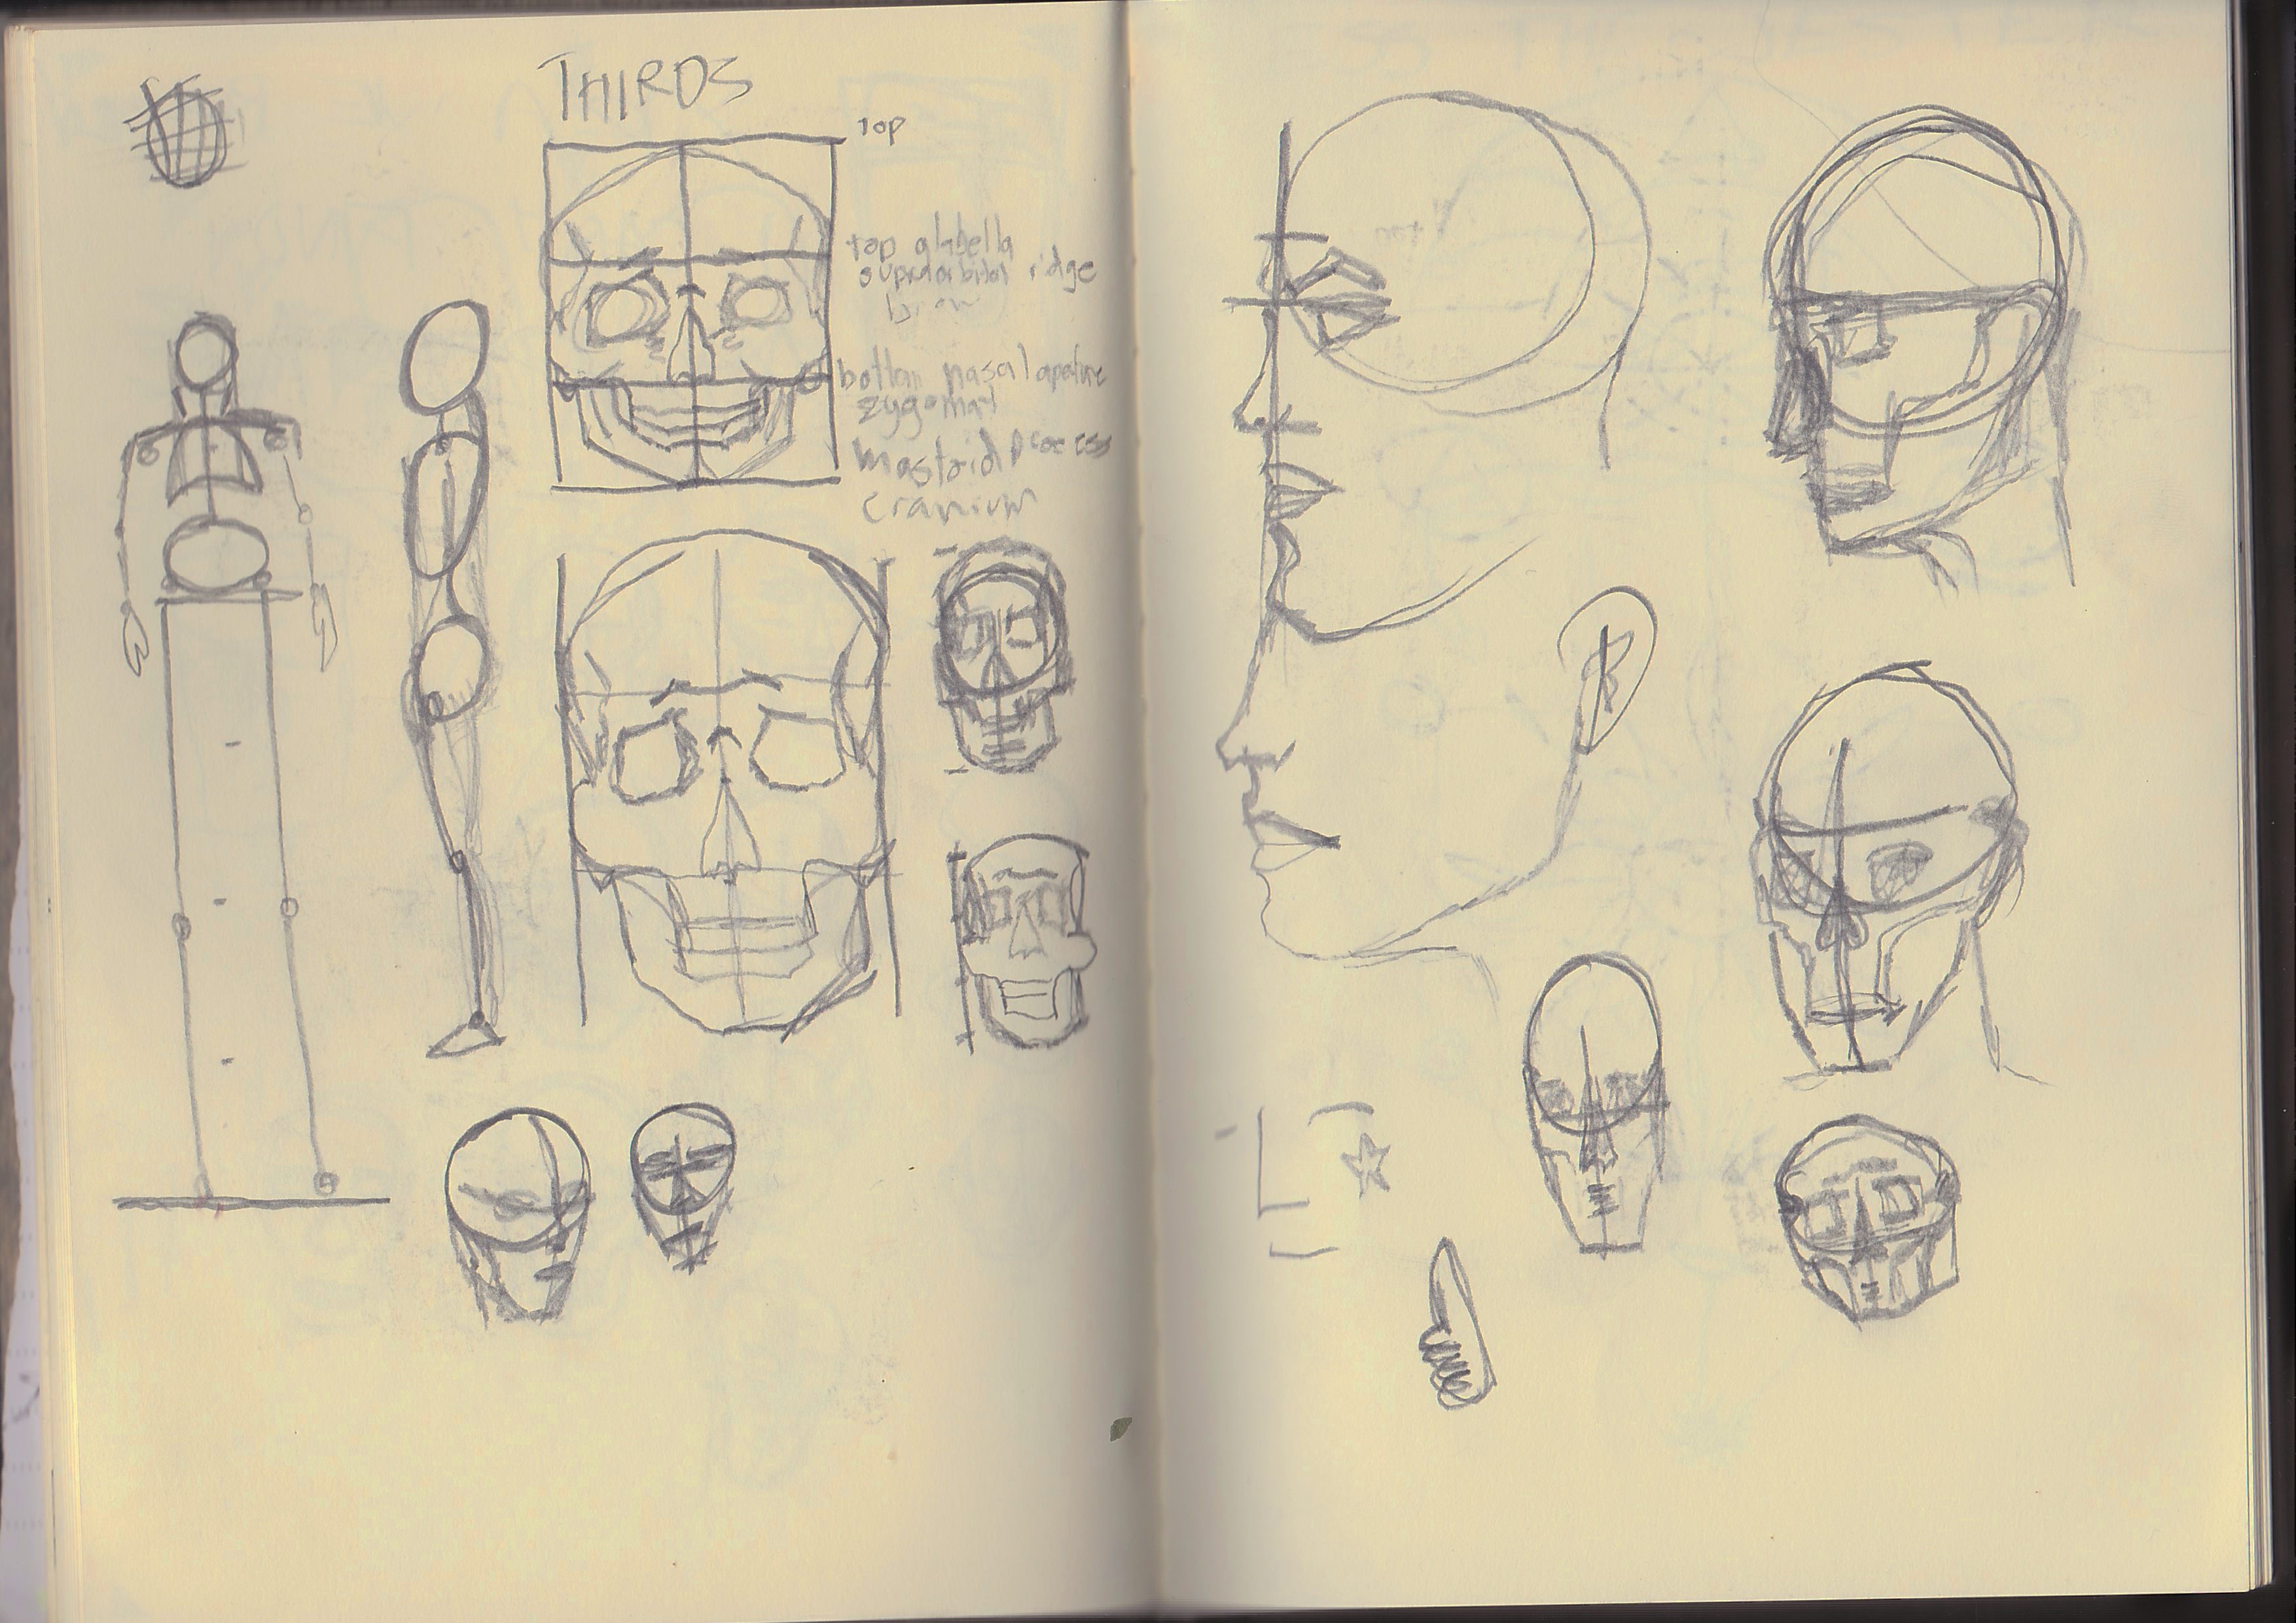 THIRDS
TOP
top glabella
supraorbital ridge
brow
bottom nasal apature
zygomat
mastoid process
cranium